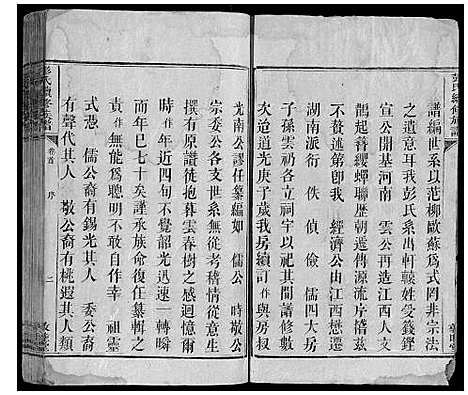 譜編世系以范柳歐蘇爲式罔非宗法
之遺意耳我彭氏系出軒轅姓受籛鏗
宣公開基河南 雲公再造江西人文
鵲起簪纓蟬聯歷朝遷傳源流斤積茲
不贅述第卽我 構雲公由江西懋遷
湖南派衍 佚 偵 儉 儒四大房
子孫雲礽各立祠宇以祀其間譜修數
次迨道光庚子歲我房續訂作與房叔
光南公謬任纂編如 儒公 時敬公
宗委公各支世系無從考稽情從意生
撰有原譜徒抱暮雲春樹之感
時作年近四旬不覺韶光迅速一轉瞬
而年已七十矣謹承族命復任纂輯之
責作無能爲聰明不敢自作幸 祖靈
式憑 儒公裔有錫光其人 委公裔
有聲代其人 敬公裔有桃遐其人類
彭氏續修族譜
卷首 序
二